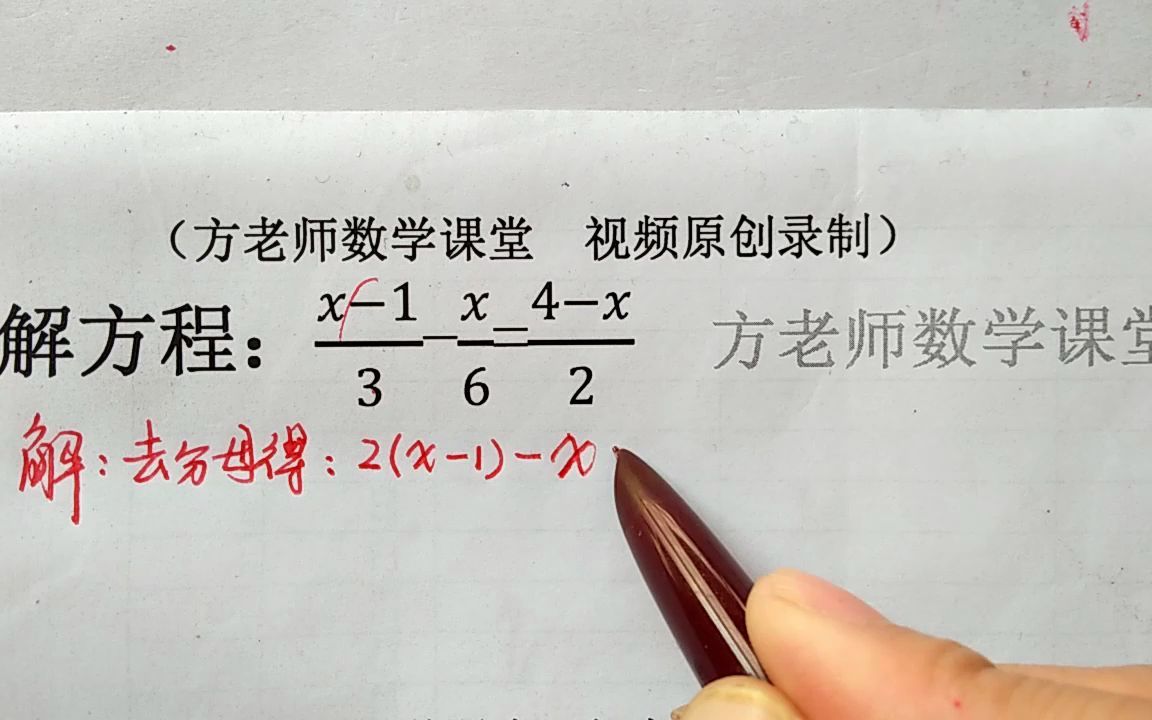 （方老师数学课堂　视频原创录制）
解方程：(x−1)/3−x/6=(4−x)/2
方老师数学课堂
解：去分母得：2(x-1)-x